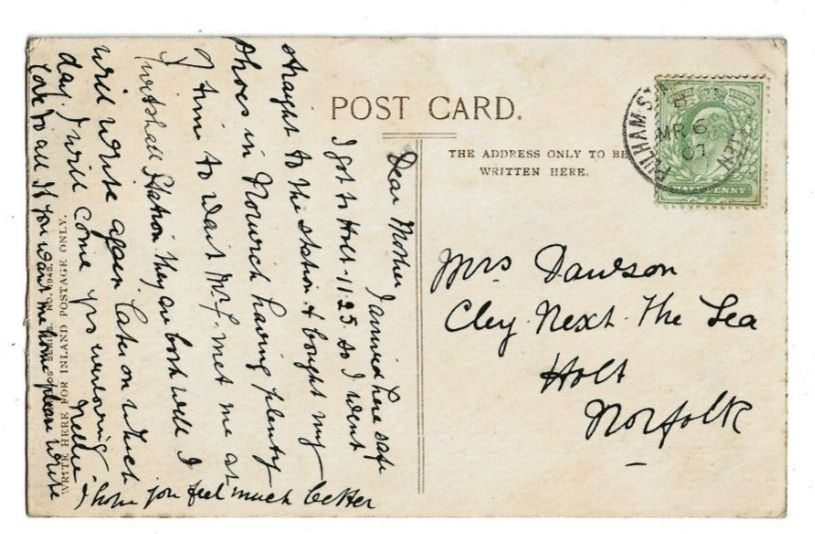 POST CARD.
THE ADDRESS ONLY TO BE
WRITTEN HERE.
PULHAM ST
MR 6
07
HALFPENNY
Mrs Dawson
Cley. Next. The Sea
Holt
Norfolk
Dear Mother I arrived here safe
I got to Holt - 11-25. so I went
straight to the station & bought my
shoes in Norwich having plenty
of time to wait Mr. met me at
station they are both well I
will write again later on which
day I will come yrs
Nellie
love to all If you want me home please write
I hope you feel much better
WRITE HERE FOR INLAND POSTAGE ONLY.